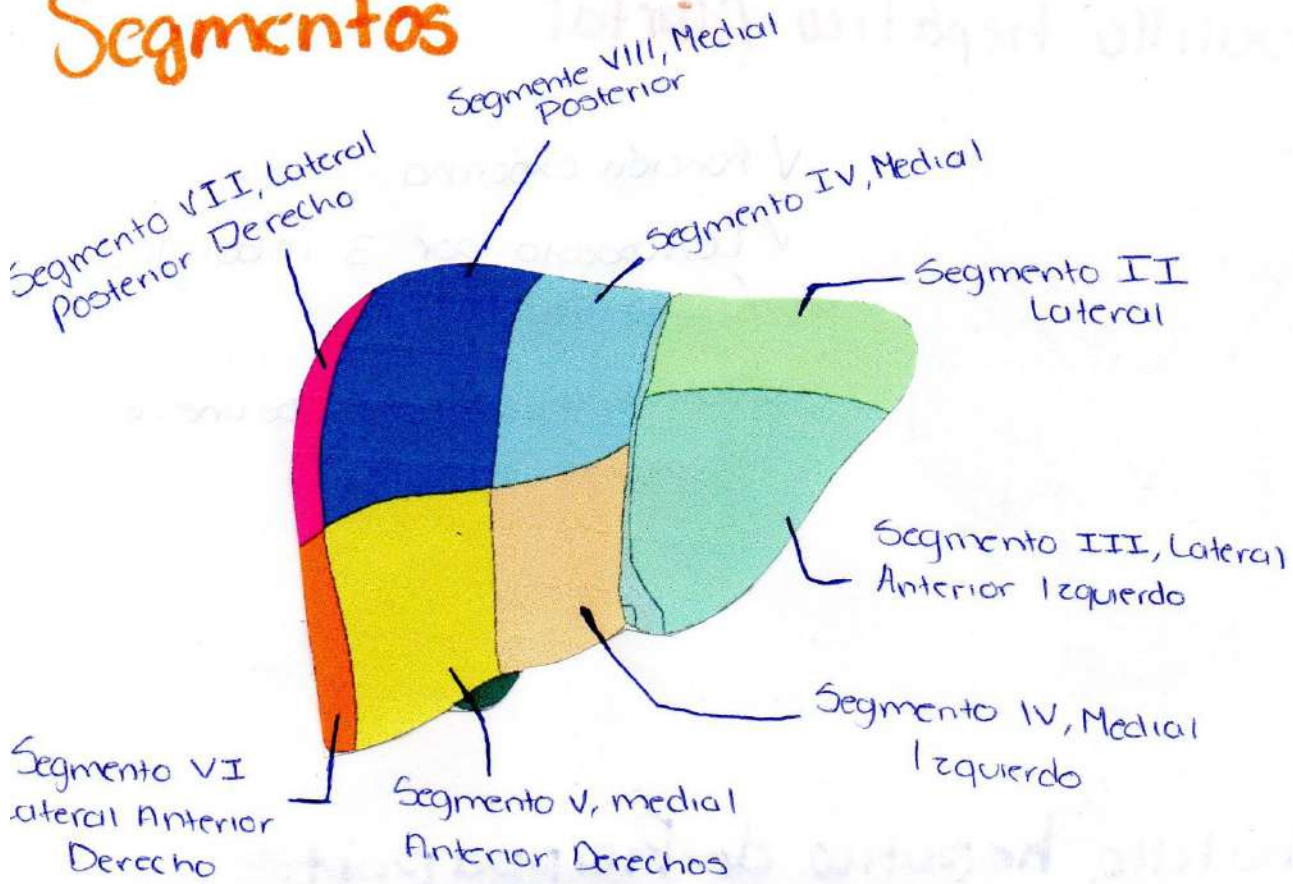 Segmentos
Segmente VIII, Medial
Posterior
Segmento VII, Lateral
Posterior Derecho
Segmento IV, Medial
Segmento II
Lateral
Segmento III, Lateral
Anterior Izquierdo
Segmento IV, Medial
Izquierdo
Segmento V, medial
Anterior Derechos
Segmento VI
ateral Anterior
Derecho